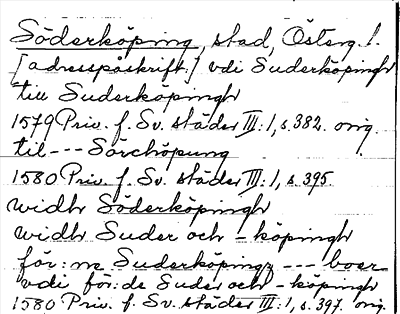 Söderköping, stad, Österg. l.
[adresspåskrift] vdi Suderköpingh
till Suderköpingh
1579 Priv. f. Sv. städer III:1, s. 382. orig.
til --- Sörchöpung
1580 Priv. f. Sv. städer III:1, s. 395
widh Söderköpingh
widh Suder och - köpingh
för:ne Suderköpingz --- boer
vdi för:de Suder och - köpingh
1580 Priv. f. Sv. städer III:1, s. 397. orig.